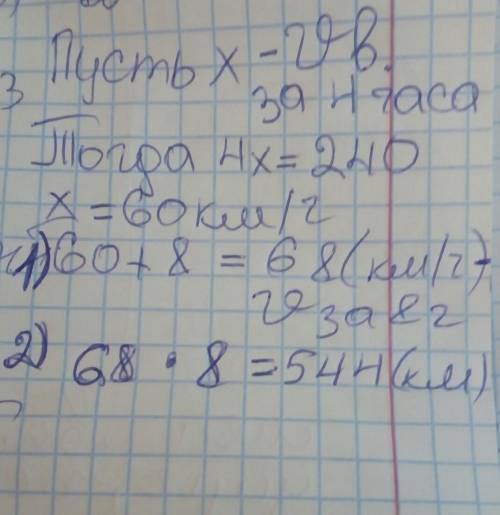 Пусть x - υ в.
3 за 4 часа
Тогда 4x = 240
x = 60 км/ч
1) 60 + 8 = 68 (км/ч) -
υ за 8 ч
2) 68 · 8 = 544 (км)